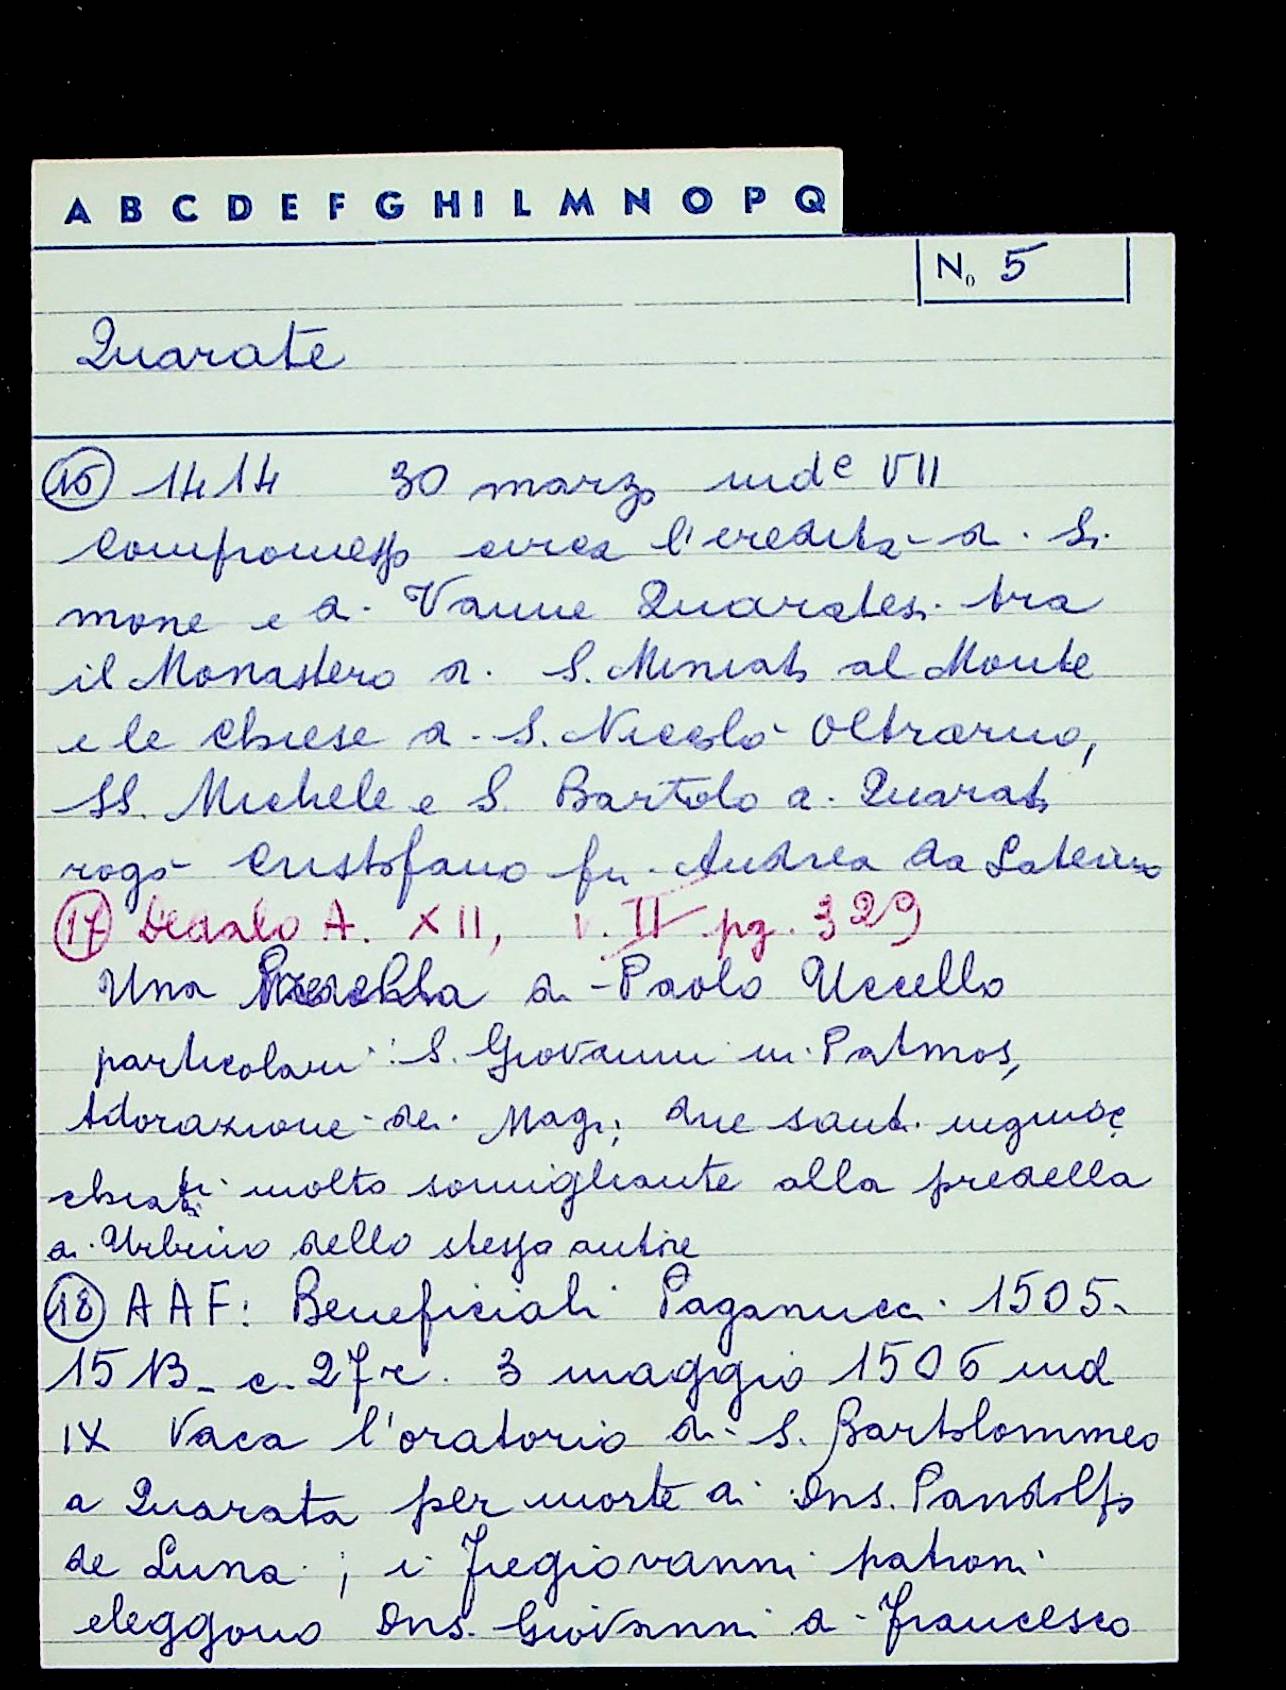 A B C D E F G H I L M N O P Q
No 5
Quarate
16 1414 30 marzo inde VII
Compromesso circa l'eredità di Si-
mone e di Vanne Quaratesi tra
il Monastero di S. Miniato al Monte
e le chiese di S. Niccolò Oltrarno,
SS. Michele e S. Bartolo a Quarat
rogò Cristofano fu Andrea da Laterino
17 Dedalo A. XII, v. II pg. 329
Una Predella di Paolo Uccello
particolari: S. Giovanni in Patmos,
Adorazione dei Magi; due santi inginoc
chiati molto somigliante alla predella
di Urbino dello stesso autore
18 AAF: Beneficiali Paganucci 1505-
1513- c. 27r. 3 maggio 1506 ind
IX Vaca l'oratorio di S. Bartolommeo
a Quarata per morte di Dns. Pandolfo
de Luna; i Fregiovanni patroni
eleggono Dns. Giovanni di Francesco